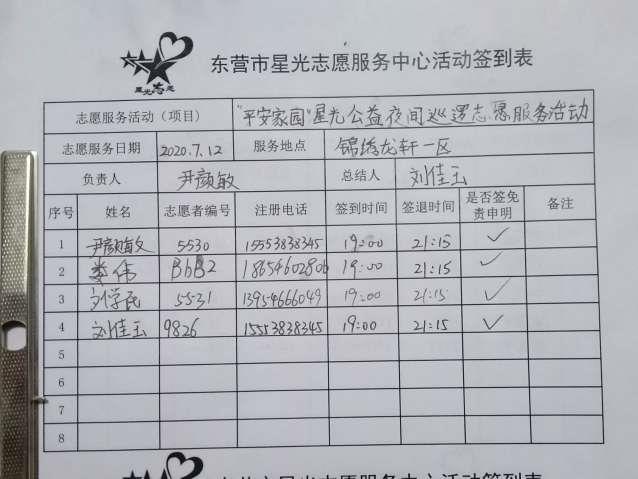 星光志愿
东营市星光志愿服务中心活动签到表
志愿服务活动（项目） "平安家园"星光公益夜间巡逻志愿服务活动
志愿服务日期 2020.7.12 服务地点 锦绣龙轩一区
负责人 尹颜敏 总结人 刘佳玉
序号 姓名 志愿者编号 注册电话 签到时间 签退时间 是否签免责申明 备注
1 尹颜敏 5530 15553838345 19:00 21:15 ✓
2 娄伟 18654602806 19:00 21:15 ✓
3 刘学民 5531 13954666049 19:00 21:15 ✓
4 刘佳玉 9826 15513838345 19:00 21:15 ✓
5
6
7
8
东营市星光志愿服务中心活动签到表